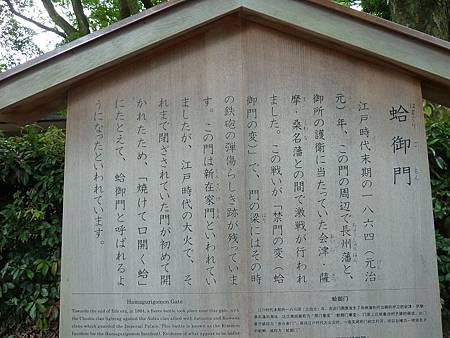 蛤御門
江戸時代末期の一八六四（元治
元）年、この門の周辺で長州藩と、
御所の護衛に当たっていた会津・薩
摩・桑名藩との間で激戦が行われ
ました。この戦いが「禁門の変（蛤
御門の変）」で、門の梁にはその時
の鉄砲の弾傷らしき跡が残っていま
す。この門は新在家門といわれてい
ましたが、江戸時代の大火で、そ
れまで閉ざされていた門が初めて開
かれたため、「焼けて口開く蛤」
にたとえて、蛤御門と呼ばれるよ
うになったといわれています。
Hamagurigomon Gate
Towards the end of Edo era, in 1864, a fierce battle took place near this gate, with
the Choshu clan fighting against the Aidzu clan allied with Satsuma and Kuwana
clans which guarded the Imperial Palace. This battle is known as the Kinmon
蛤御门